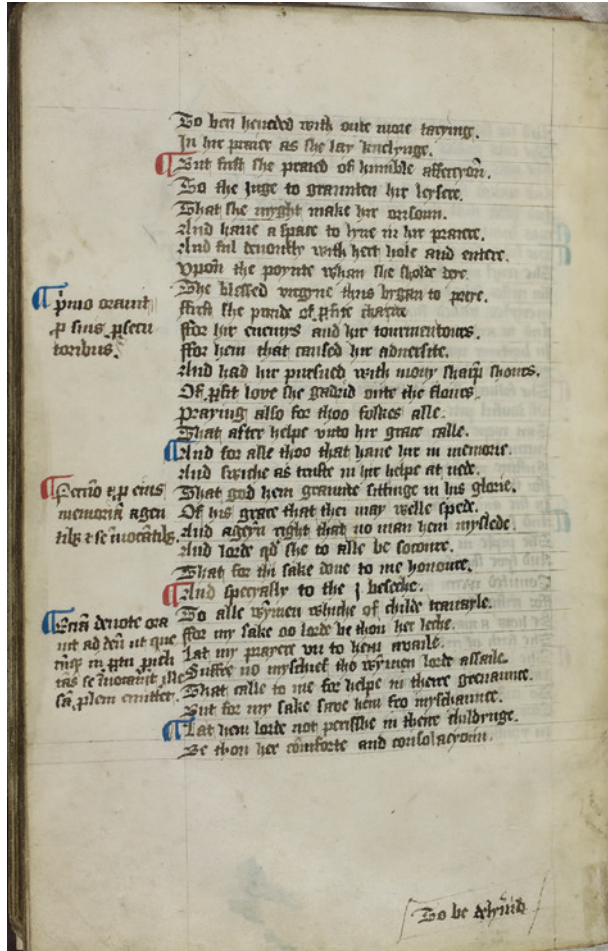 To ben heueded with oute more tarying.
In hir praier as she lay knelynge.
But first she praied of humble affeccyōn.
To the Juge to graunten hir leysere.
That she myght make hir orisoun.
And haue a space to lyue in hir praiere.
And ful deuoutly with hert hole and entere.
Vpon the poynte whan she sholde deye.
The blessed virgyne thus bygan to preye.
ffirst she praide of ꝑfite charite
ffor hir enemys and hir tourmentours.
ffor hem that caused hir aduersite.
And had hir pursued with mony sharp shours.
Of ꝑfit love she gadrid oute the flours.
Praying also for thoo folkes alle.
That after helpe vnto hir grace calle.
And for alle thoo that haue hir in memorie.
And swiche as truste in hir helpe at nede.
That god hem graunte sittinge in his glorie.
Of his grace that thei may welle spede.
And ageyn right that no man hem myslede.
And lorde qd she to alle be socoure.
That for thi sake done to me honoure.
And specyally to the j beseche.
To alle wymen whiche of childe trauayle.
ffor my sake oo lorde be thou her leche.
Lat my prayere vn to hem availe.
Suffre no myschief tho wymen lorde assaile.
That calle to me for helpe in theire greuaunce.
But for my sake save hem fro myschaunce.
Lat hem lorde not perisshe in theire childynge.
Be thou her cōmforte and consolacyoun.
pimo orauit
ꝓ suis ꝑsecu
toribus.
Secūo ⁊ ꝓ eius
memoriā agen
tibꝫ ⁊ se inuocātibꝫ.
Eciā deuote ora
uit ad deū ut que
cūqꝫ in ꝑtu ꝑicli
tās se inuocauit ille
sā ꝓlem emittet.
To be delyuid